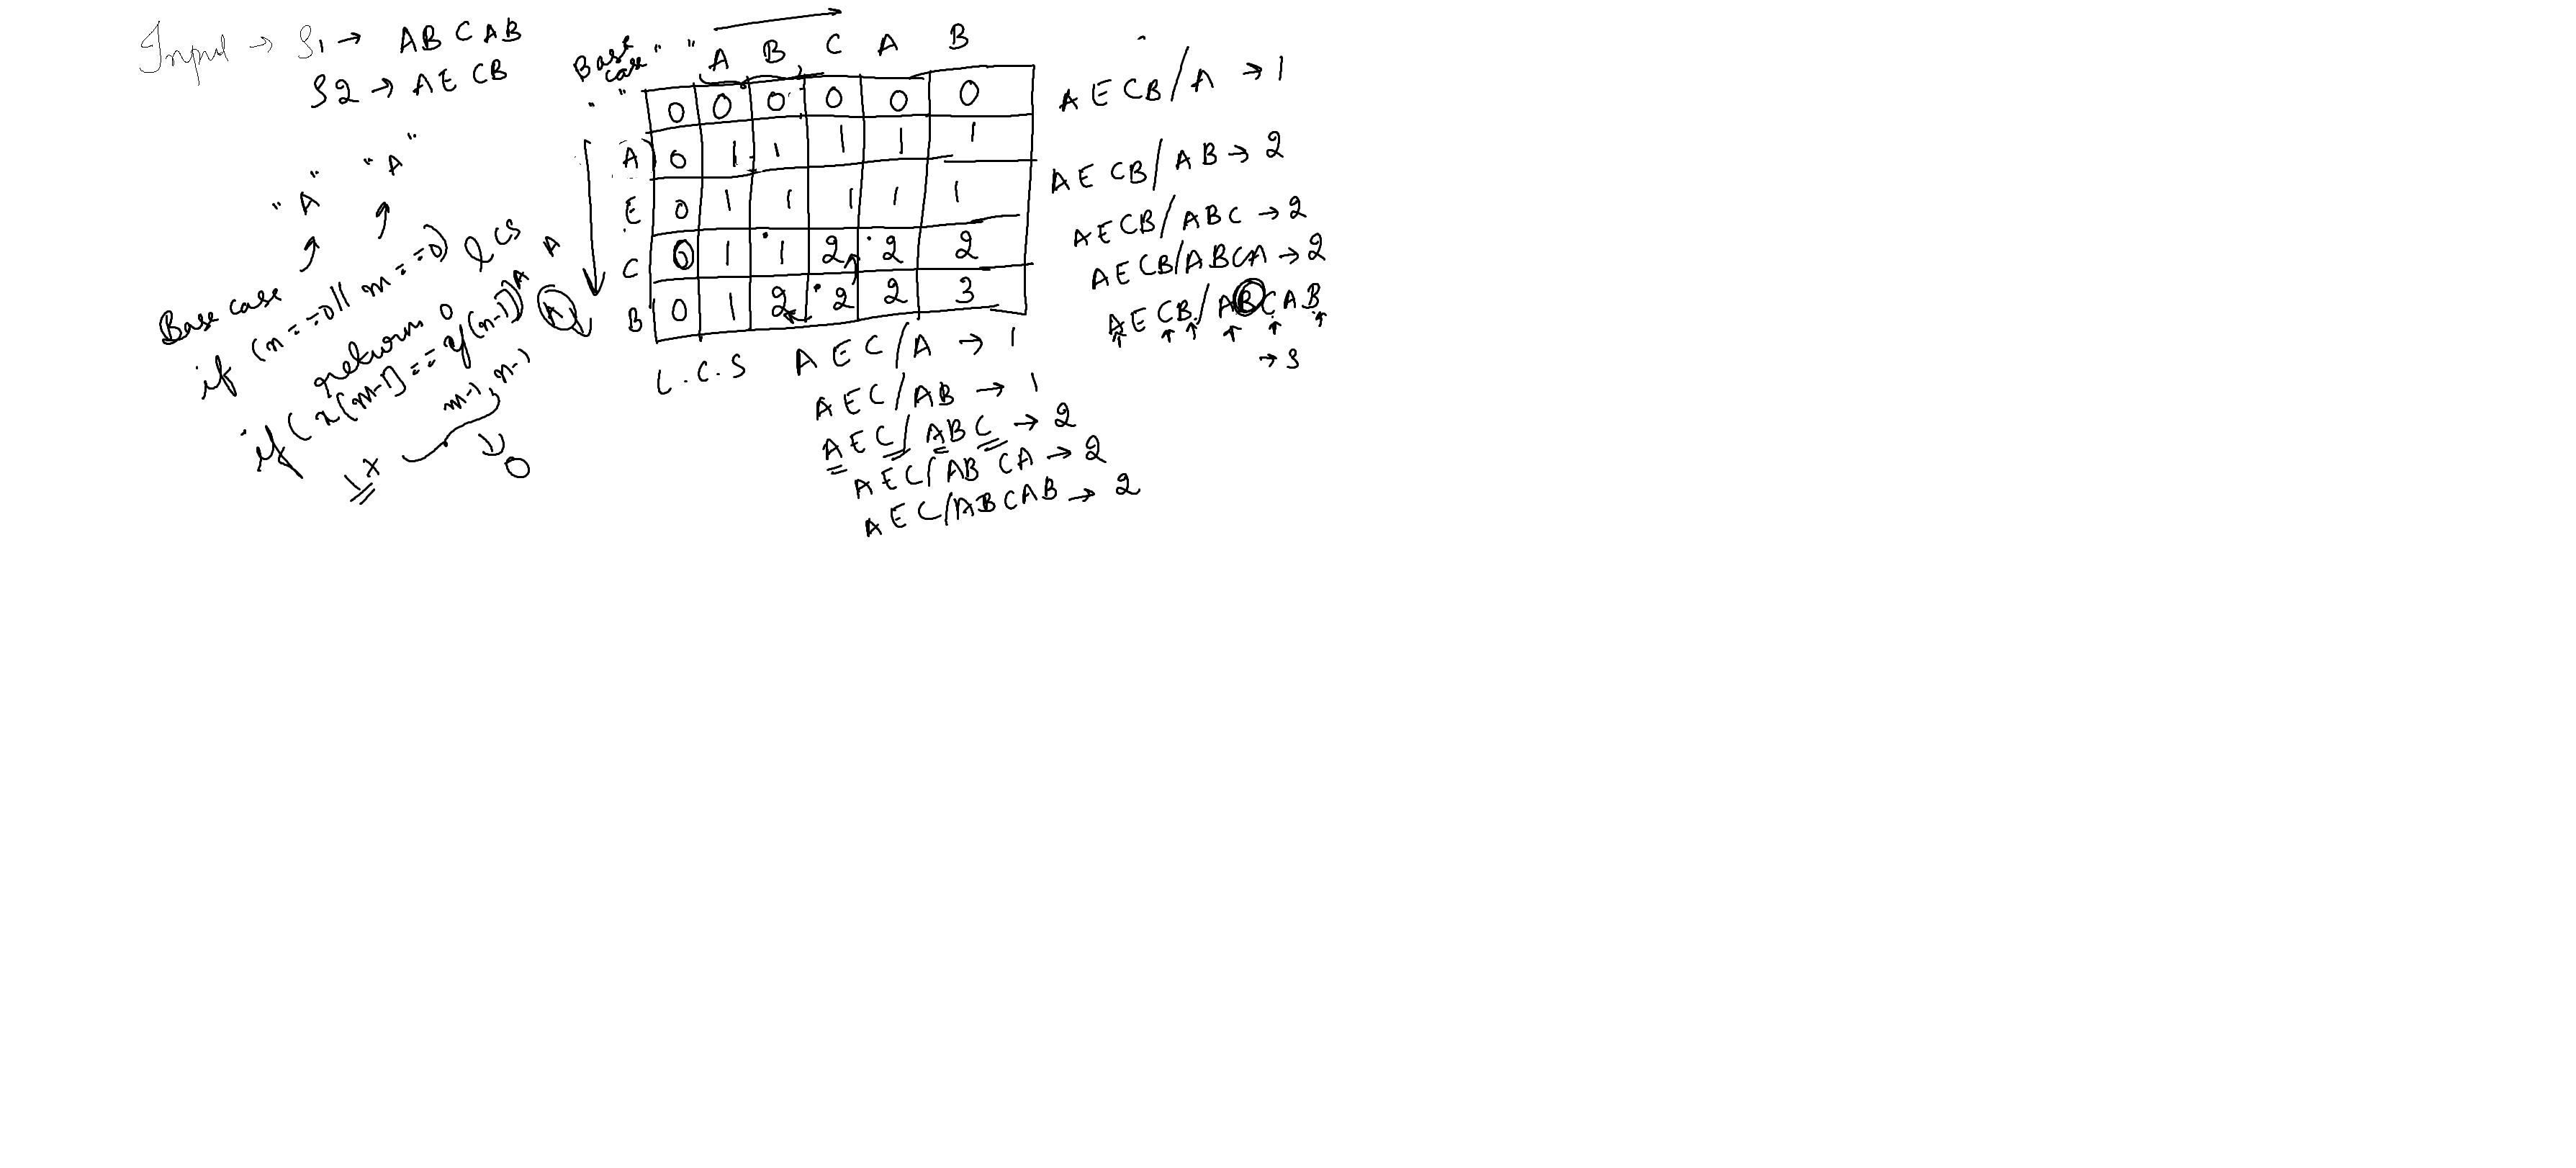 Input → S1 → ABCAB
S2 → AECB
"A" "A"
Base case
if (n==0 || m==0) lcs
return 0
if (x[m-1] == y(n-1)) A A
A
m-1, n-1
1+
0
Base case " " A B C A B
" " 0 0 0 0 0 0
A 0 1 1 1 1 1
E 0 1 1 1 1 1
C 0 1 1 2 2 2
B 0 1 2 2 2 3
L.C.S AEC/A → 1
AEC/AB → 1
AEC/ABC → 2
AEC/ABCA → 2
AEC/ABCAB → 2
AECB/A → 1
AECB/AB → 2
AECB/ABC → 2
AECB/ABCA → 2
AECB/ABCAB
→ 3